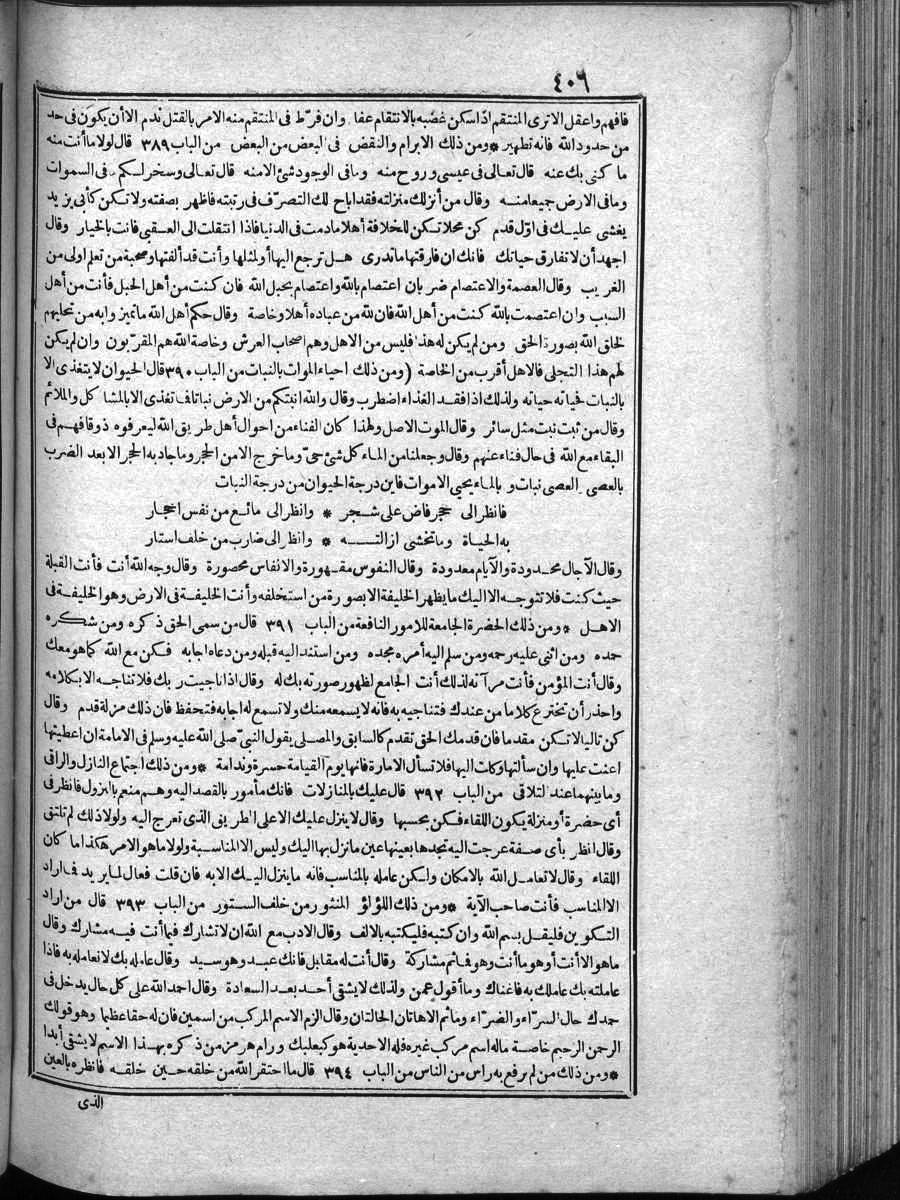 ٤٠٦
فافهم واعقل الاترى المنتقم اذا سكن غضبه بالانتقام عفا وان فرّط فى المنتقم منه الامر بالقتل ندم الا أن يكون فى حد
من حدود الله فانه تطهير * ومن ذلك الابرام والنقض فى البعض من البعض من الباب ٣٨٩ قال لولا ما أنت منه
ما كنى بك عنه قال تعالى فى عيسى وروح منه وما فى الوجود شئ الا منه قال تعالى وسخر لكم ما فى السموات
وما فى الارض جميعا منه وقال من أنزلك منزلته فقد اباح لك التصرّف فى رتبته فاظهر بصفته ولا تكن كأبى يزيد
يغشى عليك فى اوّل قدم كن محلا تكن للخلافة أهلا ما دمت فى الدنيا فاذا انتقلت الى العقبى فانت بالخيار وقال
اجهد أن لا تفارق حياتك فانك ان فارقتها ما تدرى هل ترجع اليها أو لمثلها وأنت قد ألفتها وصحبة من تعلم اولى من
الغريب وقال العصمة والاعتصام ضربان اعتصام بالله واعتصام بحبل الله فان كنت من أهل الحبل فأنت من أهل
السبب وان اعتصمت بالله كنت من أهل الله فان لله من عباده أهلا وخاصة وقال حكم أهل الله ما تميز وابه من تجليهم
لخلق الله بصورة الحق ومن لم يكن له هذا فليس من الاهل وهم اصحاب العرش وخاصة الله هم المقرّبون وان لم يكن
لهم هذا التجلى فالاهل أقرب من الخاصة (ومن ذلك احياء الموات بالنبات من الباب ٣٩٠ قال الحيوان لا يتغذى الا
بالنبات فحياته حياته ولذلك اذا فقد الغذاء اضطرب وقال والله انبتكم من الارض نباتا فما تغذى الا بالمشاكل والملائم
وقال من ثبت نبت مثل سائر وقال الموت الاصل ولهذا كان الفناء من احوال أهل طريق الله ليعرفوه ذوقا فهم فى
البقاء مع الله فى حال فناء عنهم وقال وجعلنا من الماء كل شئ حىّ وما خرج الا من الحجر وما جاد به الحجر الا بعد الضرب
بالعصى العصى نبات و بالماء يحيى الاموات فاين درجة الحيوان من درجة النبات
فانظر الى حجر فاض على شجر * وانظر الى مائع من نفس احجار
به الحياة وما تخشى ازالته * وانظر الى ضارب من خلف استار
وقال الآجال محدودة والايام معدودة وقال النفوس مقهورة والانفاس محصورة وقال وجه الله أنت فأنت القبلة
حيث كنت فلا تتوجه الا اليك ما يظهر الخليفة الا بصورة من استخلفه وأنت الخليفة فى الارض وهو الخليفة فى
الاهل * ومن ذلك الحضرة الجامعة للامور النافعة من الباب ٣٩١ قال من سمى الحق ذكره ومن شكره
حمده ومن اثنى عليه رحمه ومن سلم اليه أمره مجده ومن استند اليه قبله ومن دعاه اجابه فكن مع الله كما هو معك
وقال أنت المؤمن فأنت مرآته لذلك أنت الجامع لظهور صورته بك له وقال اذا ناجيت ربك فلا تناجه الا بكلامه
واحذر أن تخترع كلاما من عندك فتناجيه به فانه لا يسمعه منك ولا تسمع له اجابه فتحفظ فان ذلك مزلة قدم وقال
كن تاليا لا تكن مقدما فان قدمك الحق تقدم كالسابق والمصلى يقول النبىّ صلى الله عليه وسلم فى الامامة ان اعطيتها
اعنت عليها وان سألتها وكلت اليها فلا تسأل الامارة فانها يوم القيامة حسرة وندامة * ومن ذلك اجتماع النازل والراقى
وما بينهما عند التلاقى من الباب ٣٩٢ قال عليك بالمنازلات فانك مأمور بالقصد اليه وهو منعم بالنزول فانظر فى
أى حضرة أو منزلة يكون اللقاء فكن بحسبها وقال لا ينزل عليك الا على الطريق الذى تعرج اليه ولولا ذلك لم تلتق
وقال انظر بأى صفة عرجت اليه تجدها بعينها عين ما نزل بها اليك وليس الا المناسبة ولولا ما هو الامر هكذا ما كان
اللقاء وقال لا تعامل الله بالامكان ولكن عامله بالمناسب فانه ما ينزل اليك الا به فان قلت فعال لما يريد فما اراد
الا المناسب فأنت صاحب الآية * ومن ذلك اللؤلؤ المنثور من خلف الستور من الباب ٣٩٣ قال من اراد
التكوين فليقل بسم الله وان كتبه فليكتبه بالالف وقال الادب مع الله ان لا تشارك فيما أنت فيه مشارك وقال
ما هو الا أنت أو هو ما أنت وهو فما ثم مشاركة وقال أنت له مقابل فانك عبد وهو سيد وقال عامله بك لا تعامله به فاذا
عاملته بك عاملك به فاغناك وما أقول عمن ولذلك لا يشقى أحد بعد السعادة وقال احمد الله على كل حال يدخل فى
حمدك حال السرّاء والضرّاء وما ثم الا هاتان الحالتان وقال الزم الاسم المركب من اسمين فان له حقا عظيما وهو قولك
الرحمن الرحيم خاصة ماله اسم مركب غيره فله الاحدية هو كبعلبك ورام هرمز من ذكره بهذا الاسم لا يشقى أبدا
* ومن ذلك من لم يرفع به راس من الناس من الباب ٣٩٤ قال ما احتقر الله من خلقه حين خلقه فانظره بالعين
الذى